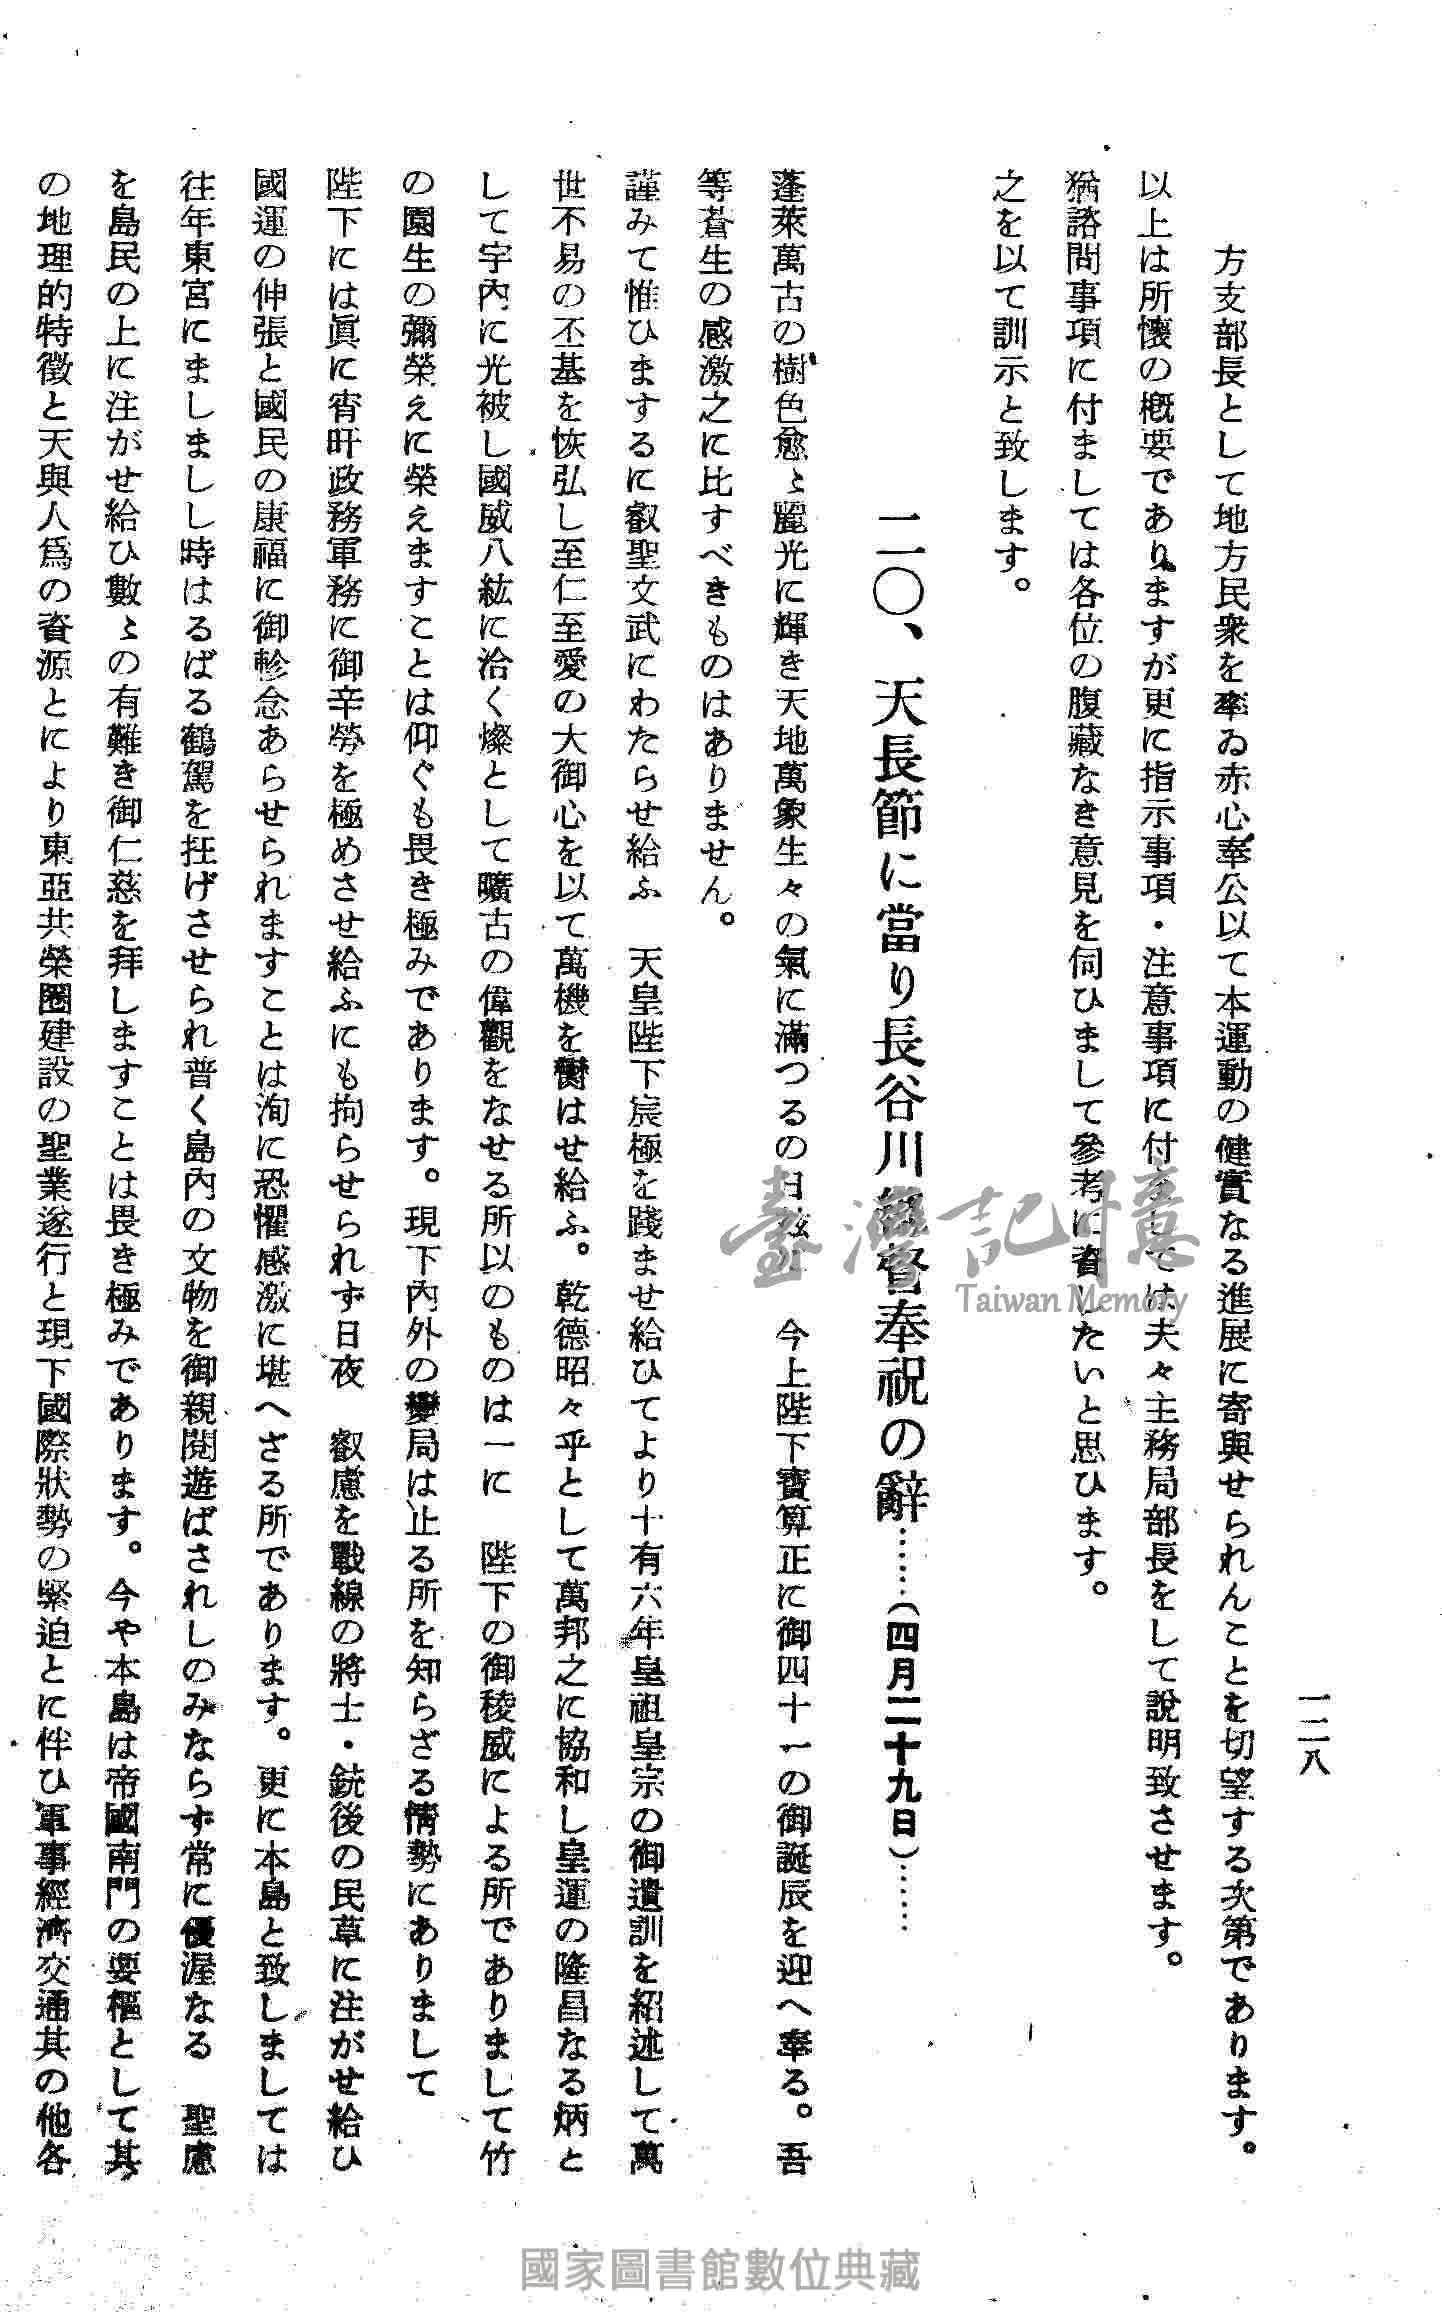 一二八
方支部長として地方民衆を率ゐ赤心奉公以て本運動の健實なる進展に寄與せられんことを切望する次第であります。
以上は所懷の概要でありますが更に指示事項・注意事項に付ましては夫々主務局部長をして說明致させます。
猶諮問事項に付ましては各位の腹藏なき意見を伺ひまして參考に資したいと思ひます。
之を以て訓示と致します。
二〇、天長節に當り長谷川總督奉祝の辭……(四月二十九日)……
蓬萊萬古の樹色愈〻麗光に輝き天地萬象生々の氣に滿つるの日茲に　今上陛下寶算正に御四十一の御誕辰を迎へ奉る。吾
等蒼生の感激之に比すべきものはありません。
謹みて惟ひまするに叡聖文武にわたらせ給ふ　天皇陛下宸極を踐ませ給ひてより十有六年皇祖皇宗の御遺訓を紹述して萬
世不易の丕基を恢弘し至仁至愛の大御心を以て萬機を衡はせ給ふ。乾德昭々乎として萬邦之に協和し皇運の隆昌なる炳と
して宇內に光被し國威八紘に洽く燦として曠古の偉觀をなせる所以のものは一に　陛下の御稜威による所でありまして竹
の園生の彌榮えに榮えますことは仰ぐも畏き極みであります。現下內外の變局は止る所を知らざる情勢にありまして
陛下には眞に宵旰政務軍務に御辛勞を極めさせ給ふにも拘らせられず日夜　叡慮を戰線の將士・銃後の民草に注がせ給ひ
國運の伸張と國民の康福に御軫念あらせられますことは洵に恐懼感激に堪へざる所であります。更に本島と致しましては
往年東宮にましましし時はるばる鶴駕を抂げさせられ普く島內の文物を御親閱遊ばされしのみならず常に優渥なる　聖慮
を島民の上に注がせ給ひ數〻の有難き御仁慈を拜しますことは畏き極みであります。今や本島は帝國南門の要樞として其
の地理的特徵と天與人爲の資源とにより東亞共榮圈建設の聖業遂行と現下國際狀勢の緊迫とに伴ひ軍事經濟交通其の他各
臺灣記憶
Taiwan Memory
國家圖書館數位典藏